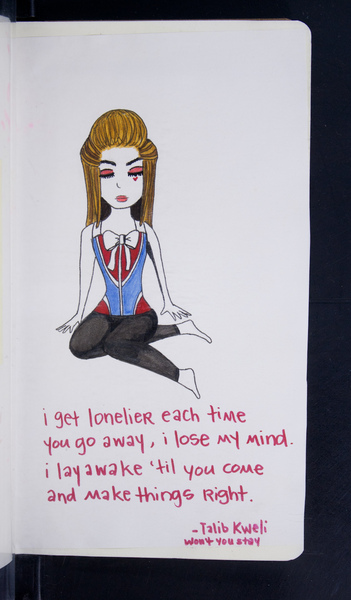 i get lonelier each time
you go away, i lose my mind.
i lay awake 'til you come
and make things right.
-Talib Kweli
won't you stay